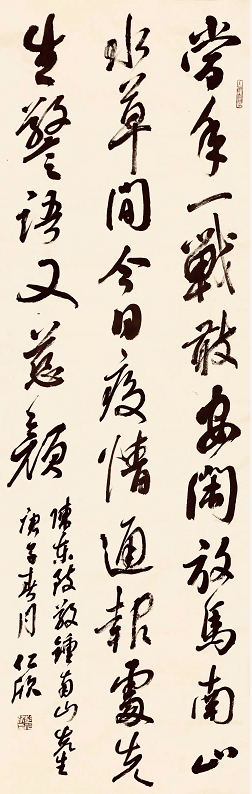 當年一戰敢安閑放馬南山
水草間今日疫情通報處先
生警語又慈顏
陳東致敬鍾南山先生
庚子春月 仁欣